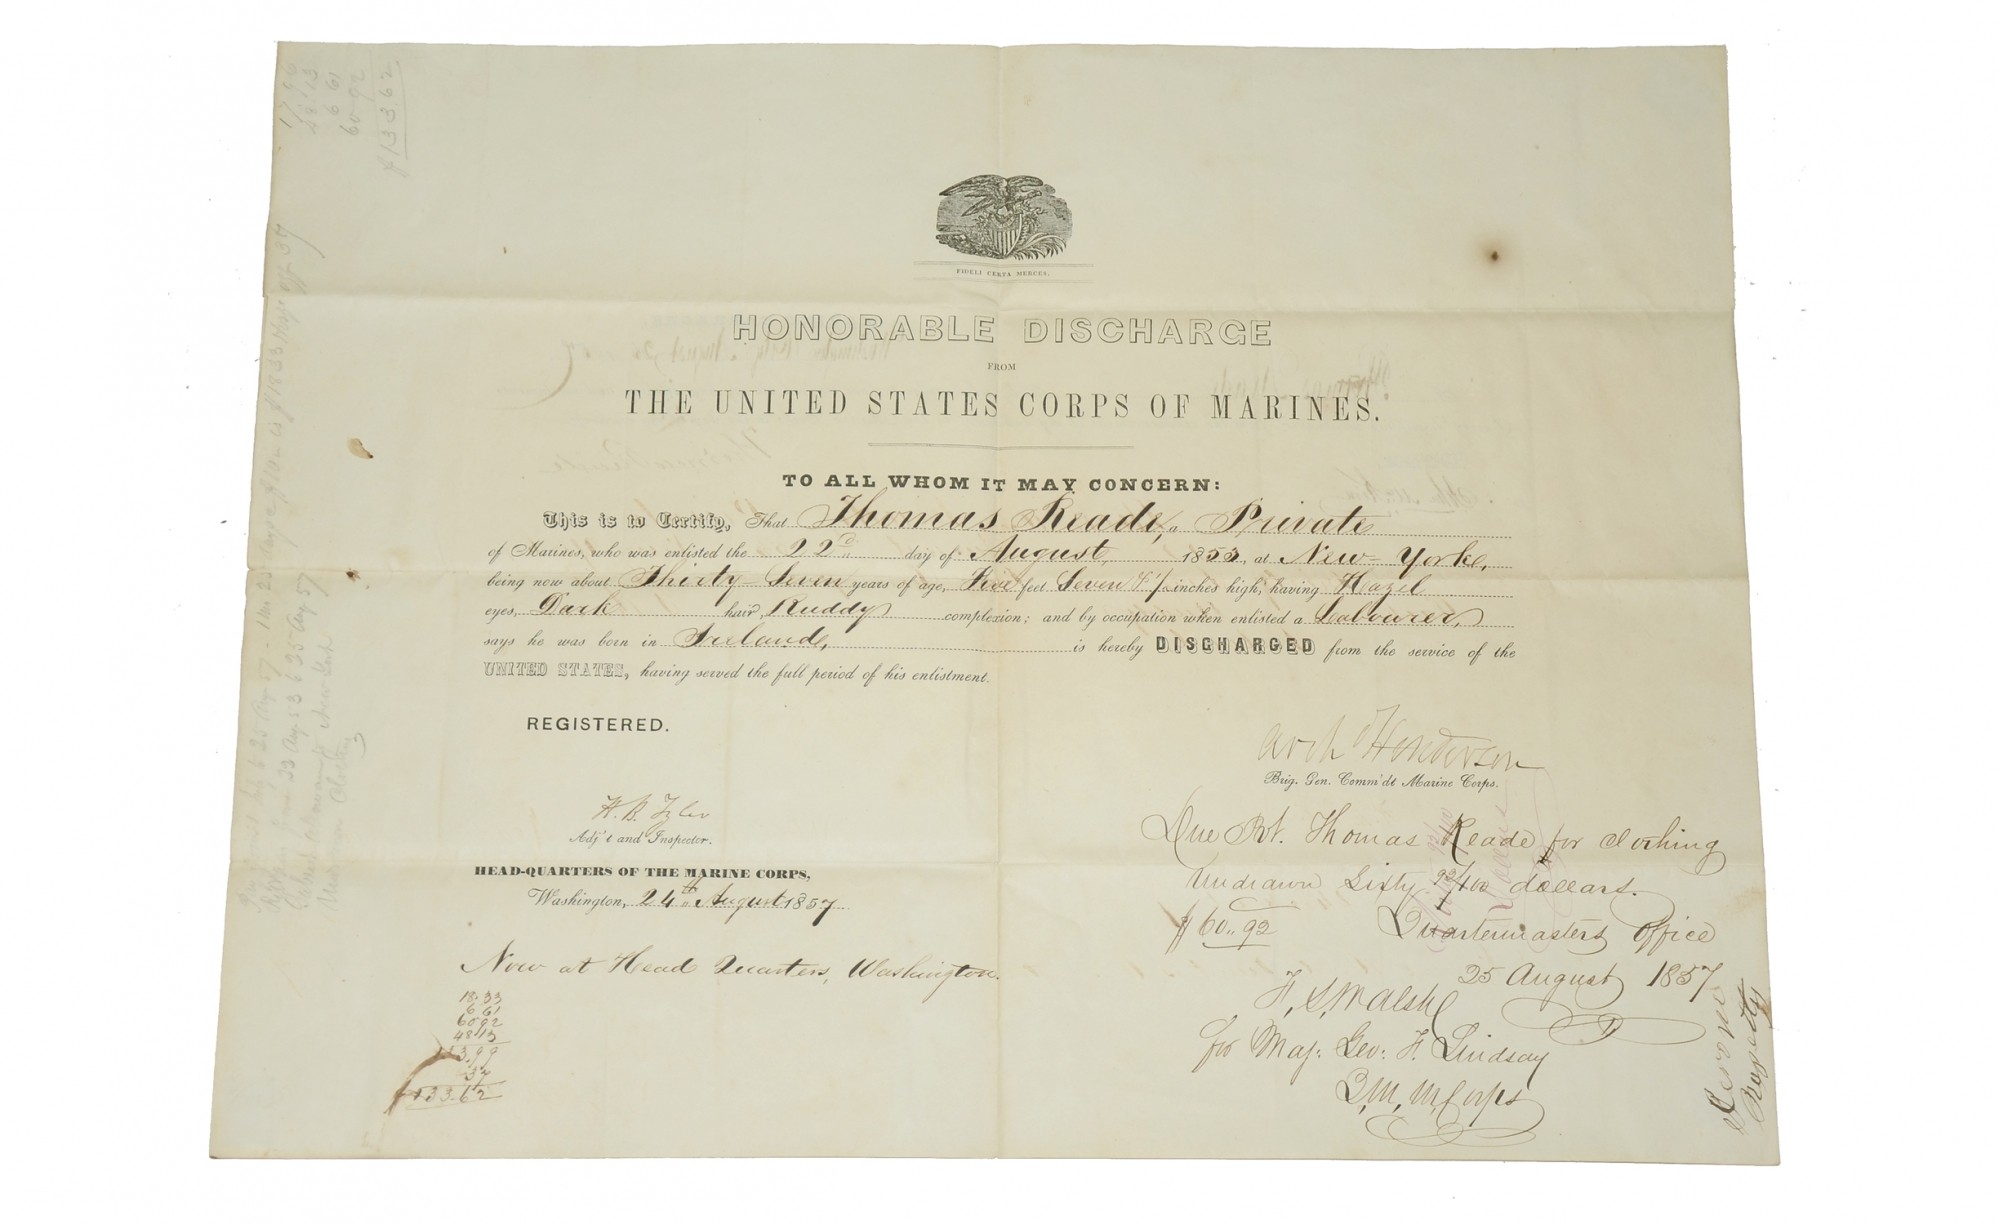 FIDELI CERTA MERCES.
HONORABLE DISCHARGE
FROM
THE UNITED STATES CORPS OF MARINES.
TO ALL WHOM IT MAY CONCERN:
This is to Certify, That Thomas Reade, a Private
of Marines, who was enlisted the 22d day of August, 1853, at New-Yorke,
being now about Thirty-Seven years of age, Five feet Seven & 1/2 inches high; having Hazel
eyes, Dark hair, Ruddy complexion; and by occupation when enlisted a Labourer,
says he was born in Irelande, is hereby DISCHARGED from the service of the
UNITED STATES, having served the full period of his enlistment.
REGISTERED.
Arch Henderson
Brig. Gen. Comm'dt Marine Corps.
H. B. Tyler
Adj't and Inspector.
HEAD-QUARTERS OF THE MARINE CORPS,
Washington, 24th August 1857
Now at Head Quarters, Washington.
18.33
6 61
60 92
48 13
133.99
.37
133.62
Due Pvt. Thomas Reade for clothing
Undrawn Sixty 92/100 dollars.
$60.. 92 Quartermasters Office
25 August 1857
for Maj: Geo: F. Lindsay
Q, M, M, Corps
17 96
48 13
6 61
60 92
$133.62